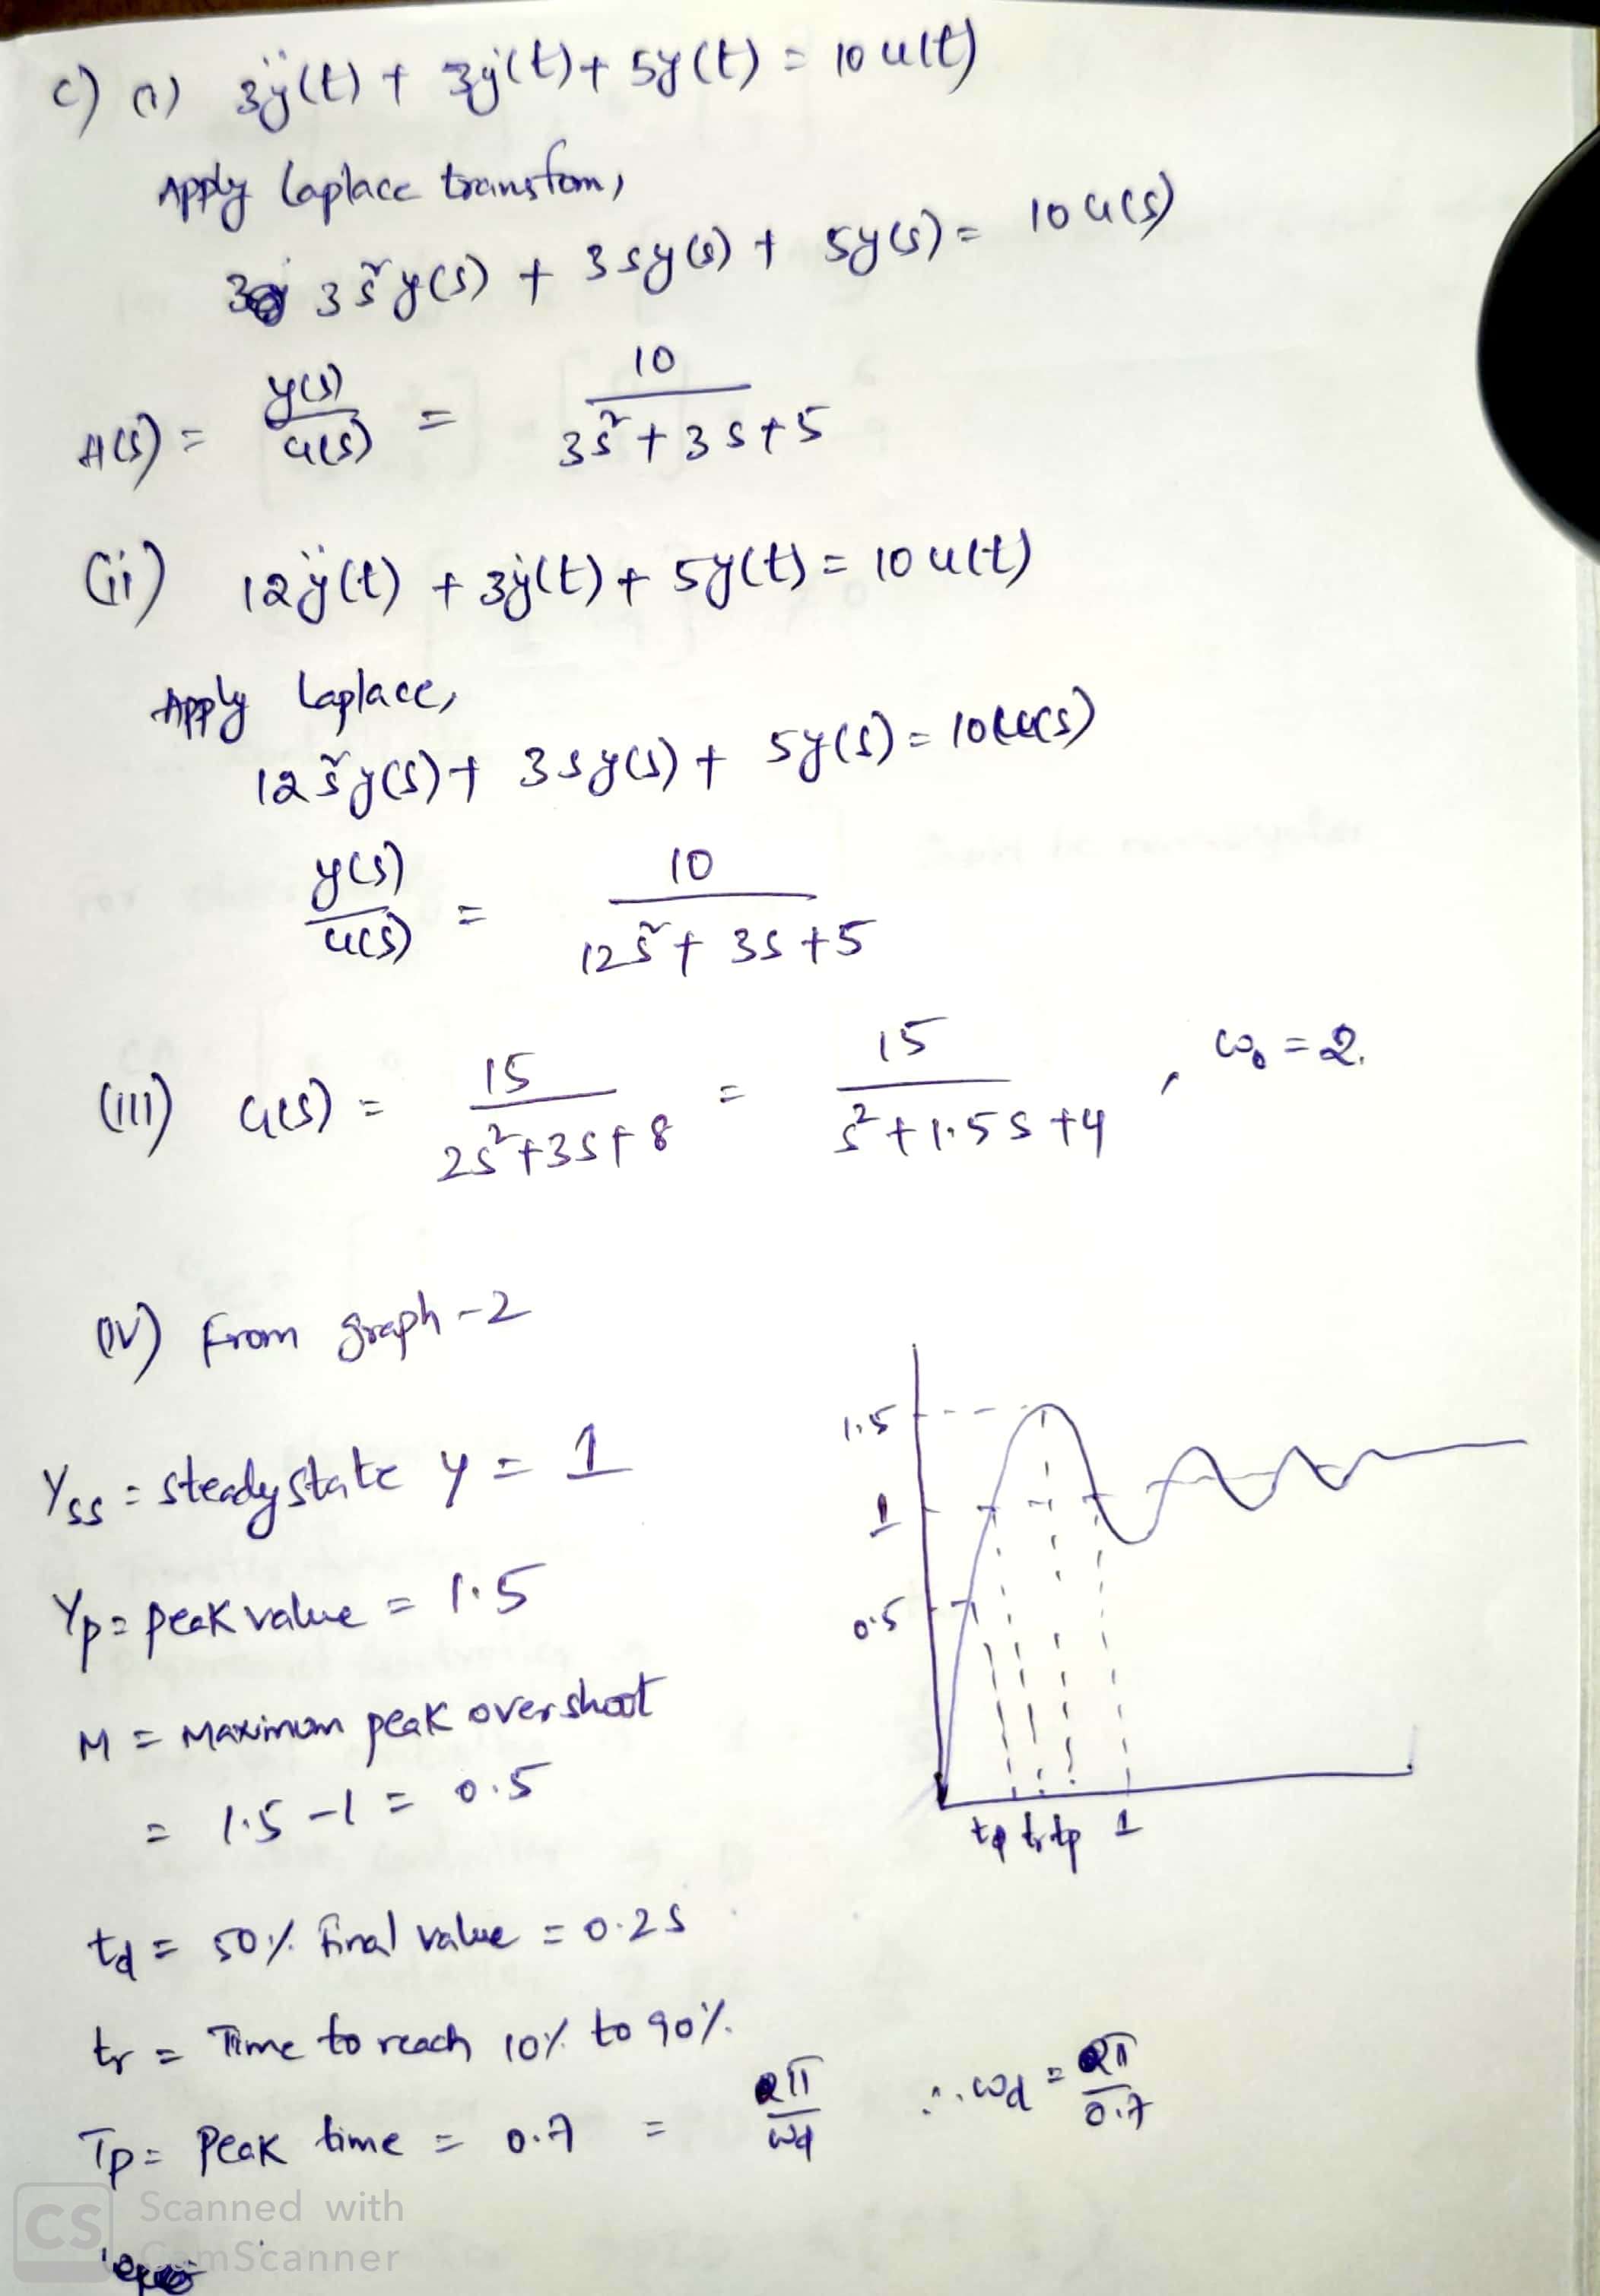 c) (i) 3ÿ(t) + 3ẏ(t) + 5y(t) = 10 u(t)
Apply Laplace transfom,
3s²y(s) + 3sy(s) + 5y(s) = 10 u(s)
H(s) = y(s)/u(s) = 10/(3s²+3s+5)
(ii) 12ÿ(t) + 3ẏ(t) + 5y(t) = 10 u(t)
Apply Laplace,
12s²y(s) + 3sy(s) + 5y(s) = 10u(s)
y(s)/u(s) = 10/(12s²+3s+5)
(iii) G(s) = 15/(2s²+3s+8) = 15/(s²+1.5s+4) , ω₀ = 2.
(iv) From graph-2
Yss = steady state y = 1
Yp = peak value = 1.5
M = Maximum peak overshoot
= 1.5 - 1 = 0.5
1.5
1
0.5
td tr tp 1
td = 50% Final value = 0.2s
tr = Time to reach 10% to 90%.
Tp = Peak time = 0.7 = 2π/ωd ∴ ωd = 2π/0.7
CS Scanned with
CamScanner